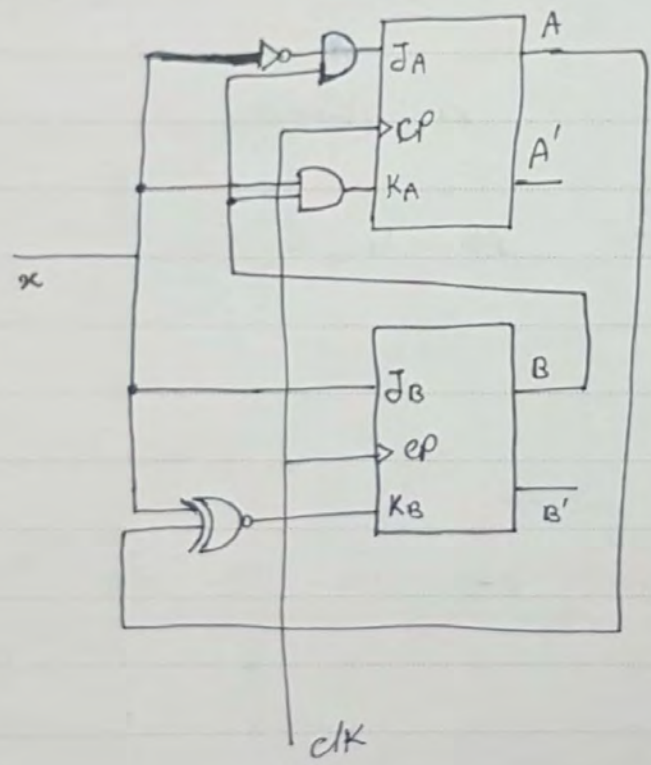 A
J_A
CP
A'
K_A
x
J_B
B
CP
K_B
B'
clK